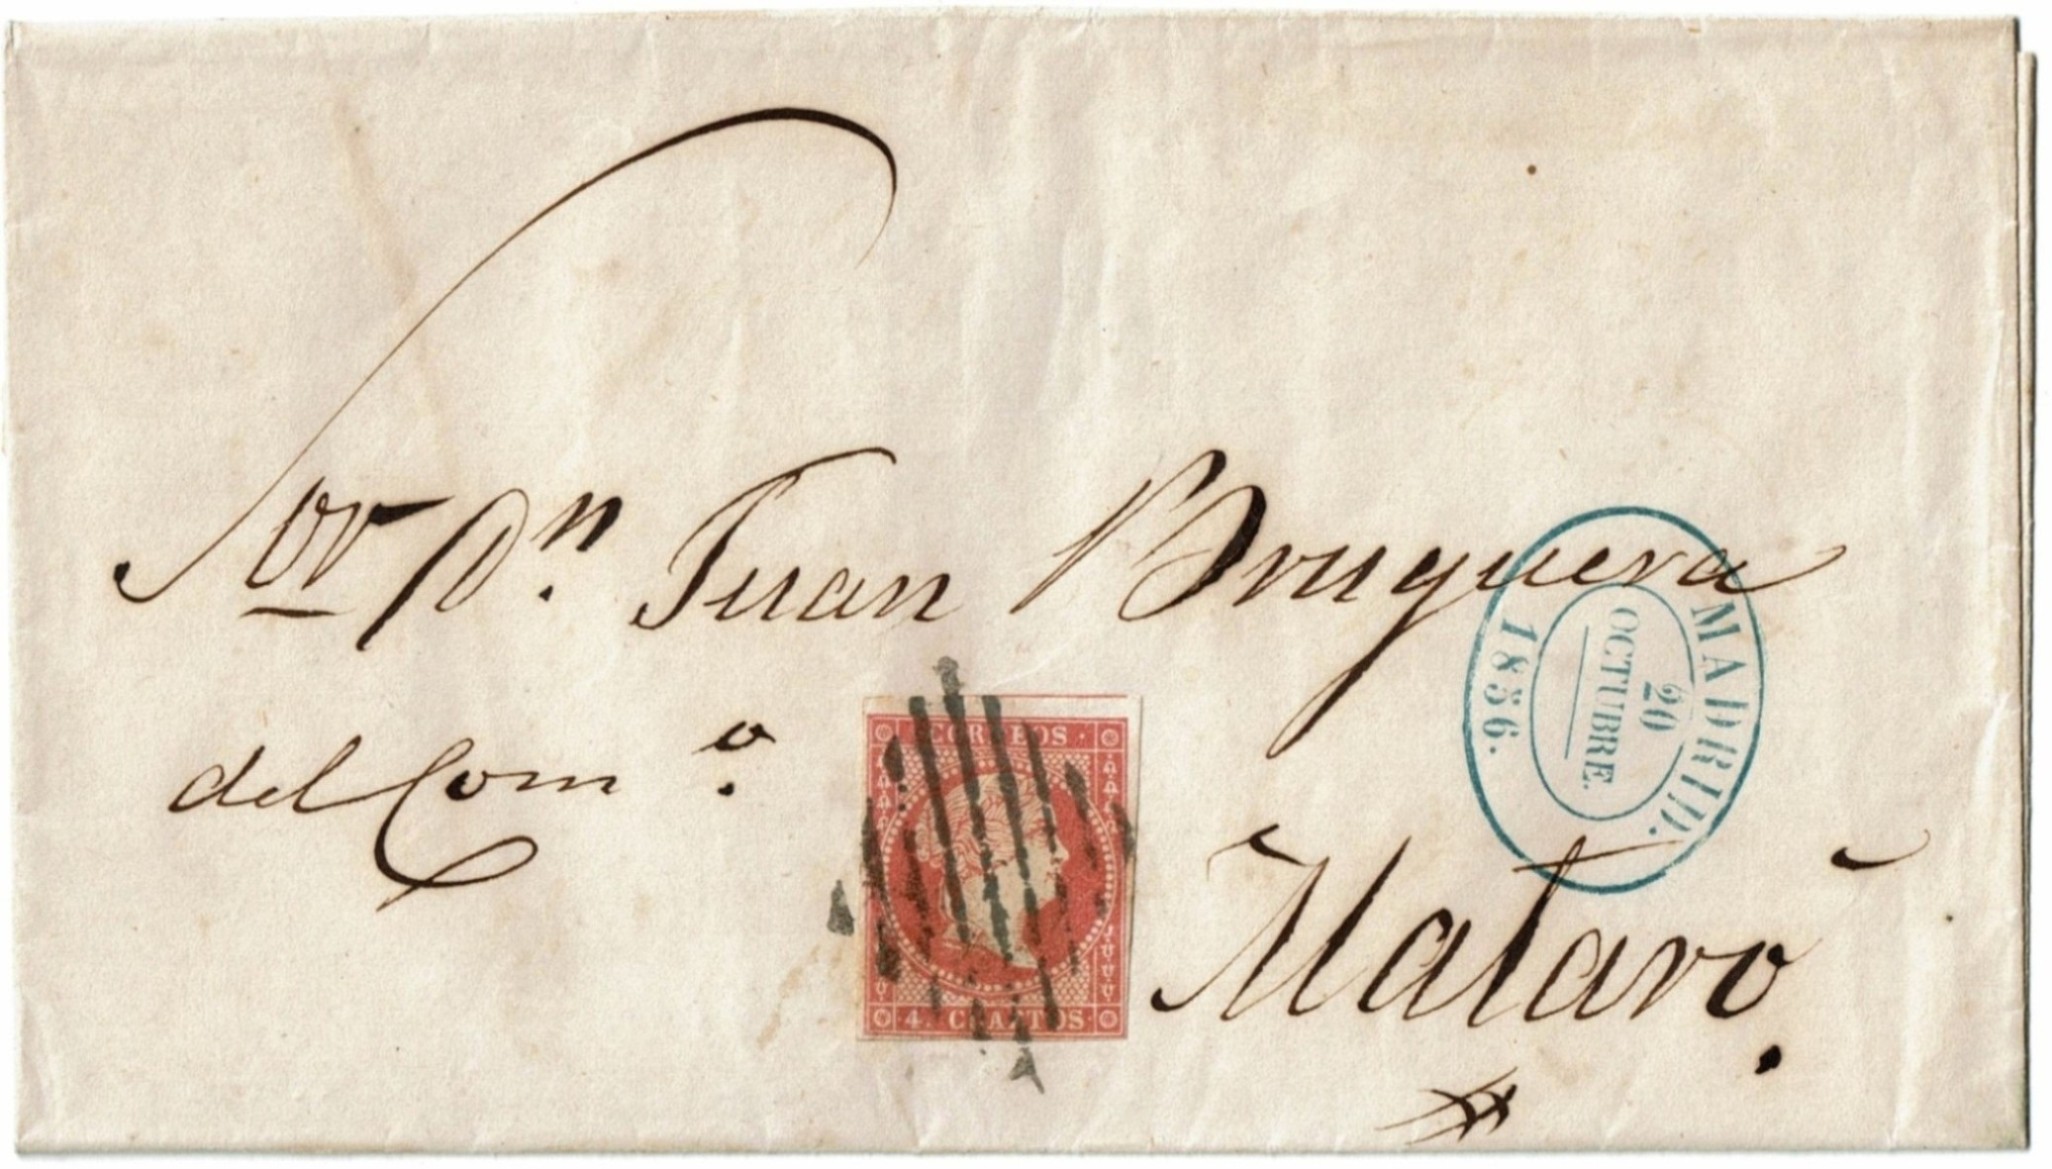 Sor Dn. Juan Bruguera
del Como.
Mataró.
CORREOS
4. CUARTOS
MADRID.
20
OCTUBRE.
1856.